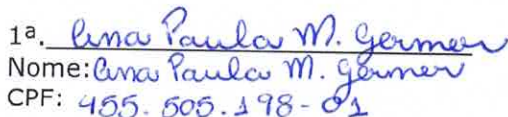 1ª. Ana Paula M. Germer
Nome: Ana Paula M. Germer
CPF: 455.505.198-01